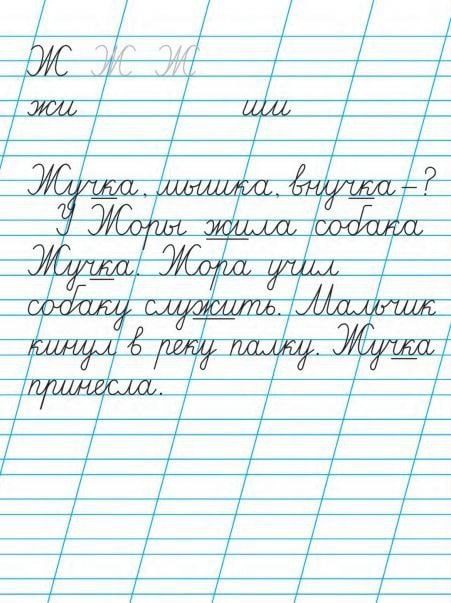 Ж Ж Ж
жи ши
Жучка, мышка, внучка – ?
У Жоры жила собака
Жучка. Жора учил
собаку служить. Мальчик
кинул в реку палку. Жучка
принесла.